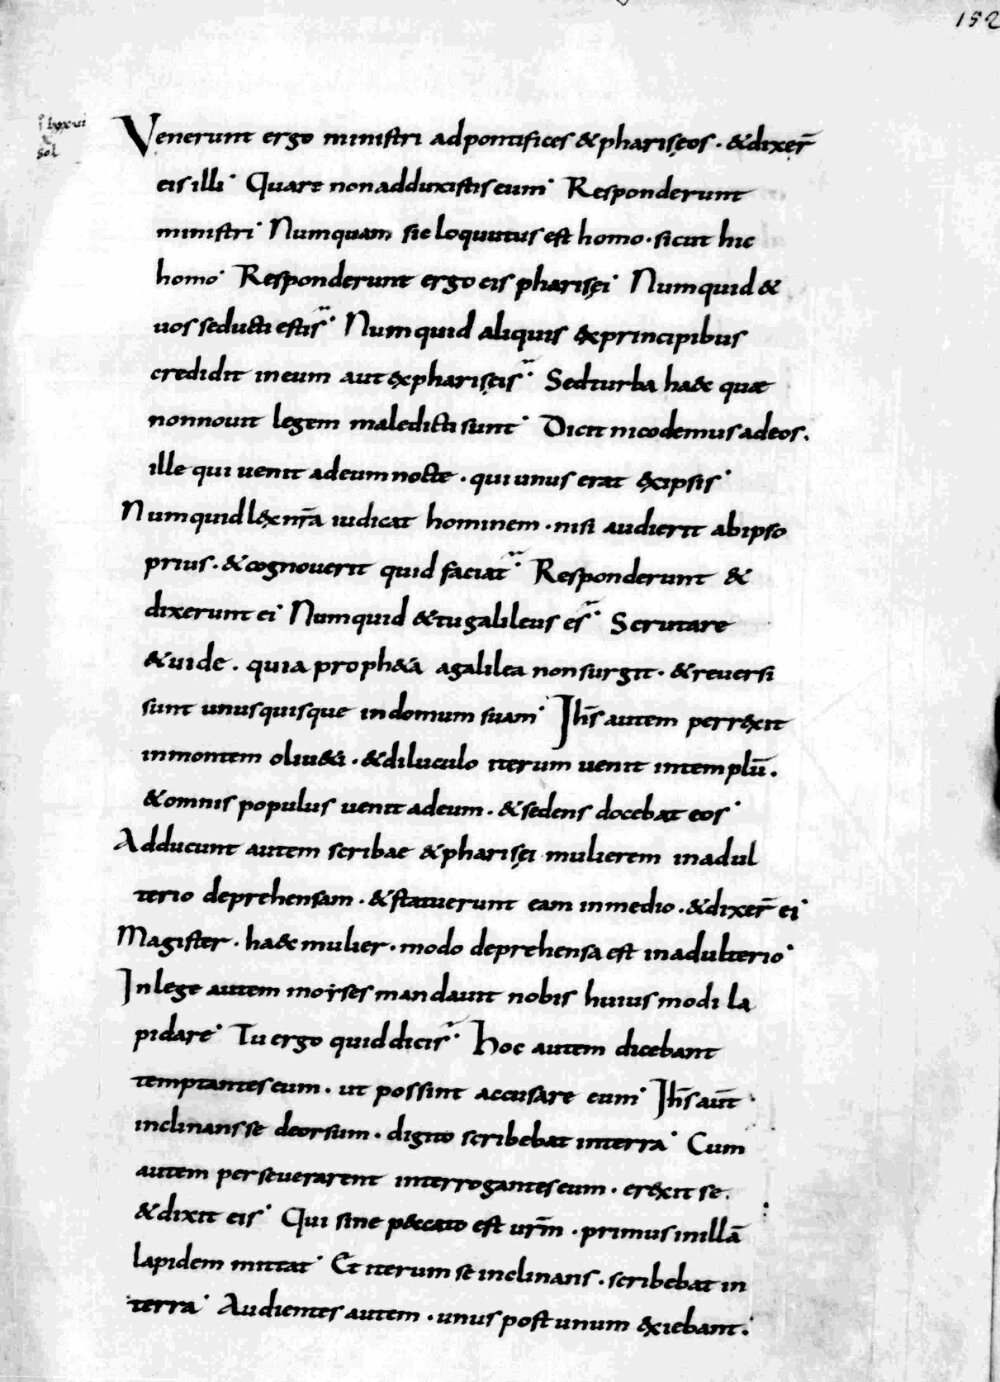 152
Venerunt ergo ministri ad pontifices & pharisęos · & dixer̄
eis illi· Quare non adduxistis eum· Responderunt
ministri· Numquam sic loquutus est homo · sicut hic
homo· Responderunt ergo eis pharisęi· Numquid &
uos seducti estis· Numquid aliquis ex principibus
credidit in eum aut ex pharisęis· Sed turba haec quae
non nouit legem maledicti sunt· Dicit nicodemus ad eos.
ille qui uenit ad eum nocte · qui unus erat ex ipsis·
Numquid lex nr̄a iudicat hominem · nisi audierit ab ipso
prius · & cognouerit quid faciat· Responderunt &
dixerunt ei· Numquid & tu galileus es· Scrutare
& uide . quia proph&a a galilea non surgit · & reuersi
sunt unusquisque in domum suam· Ihs̄ autem perrexit
in montem oliu&i · & diluculo iterum uenit in templū.
& omnis populus uenit ad eum · & sedens docebat eos·
Adducunt autem scribae & pharisęi mulierem in adul
terio deprehensam · & statuerunt eam in medio · & dixer̄ ei·
Magister · haec mulier · modo deprehensa est in adulterio·
In lege autem moyses mandauit nobis huiusmodi la
pidare· Tu ergo quid dicis· Hoc autem dicebant
temptantes eum · ut possint accusare eum· Ihs̄ aut̄
inclinans se deorsum · digito scribebat in terra· Cum
autem perseuerarent interrogantes eum · erexit se.
& dixit eis· Qui sine peccato est ur̄m · primus in illā
lapidem mittat· Et iterum se inclinans · scribebat in
terra· Audientes autem · unus post unum exiebant.